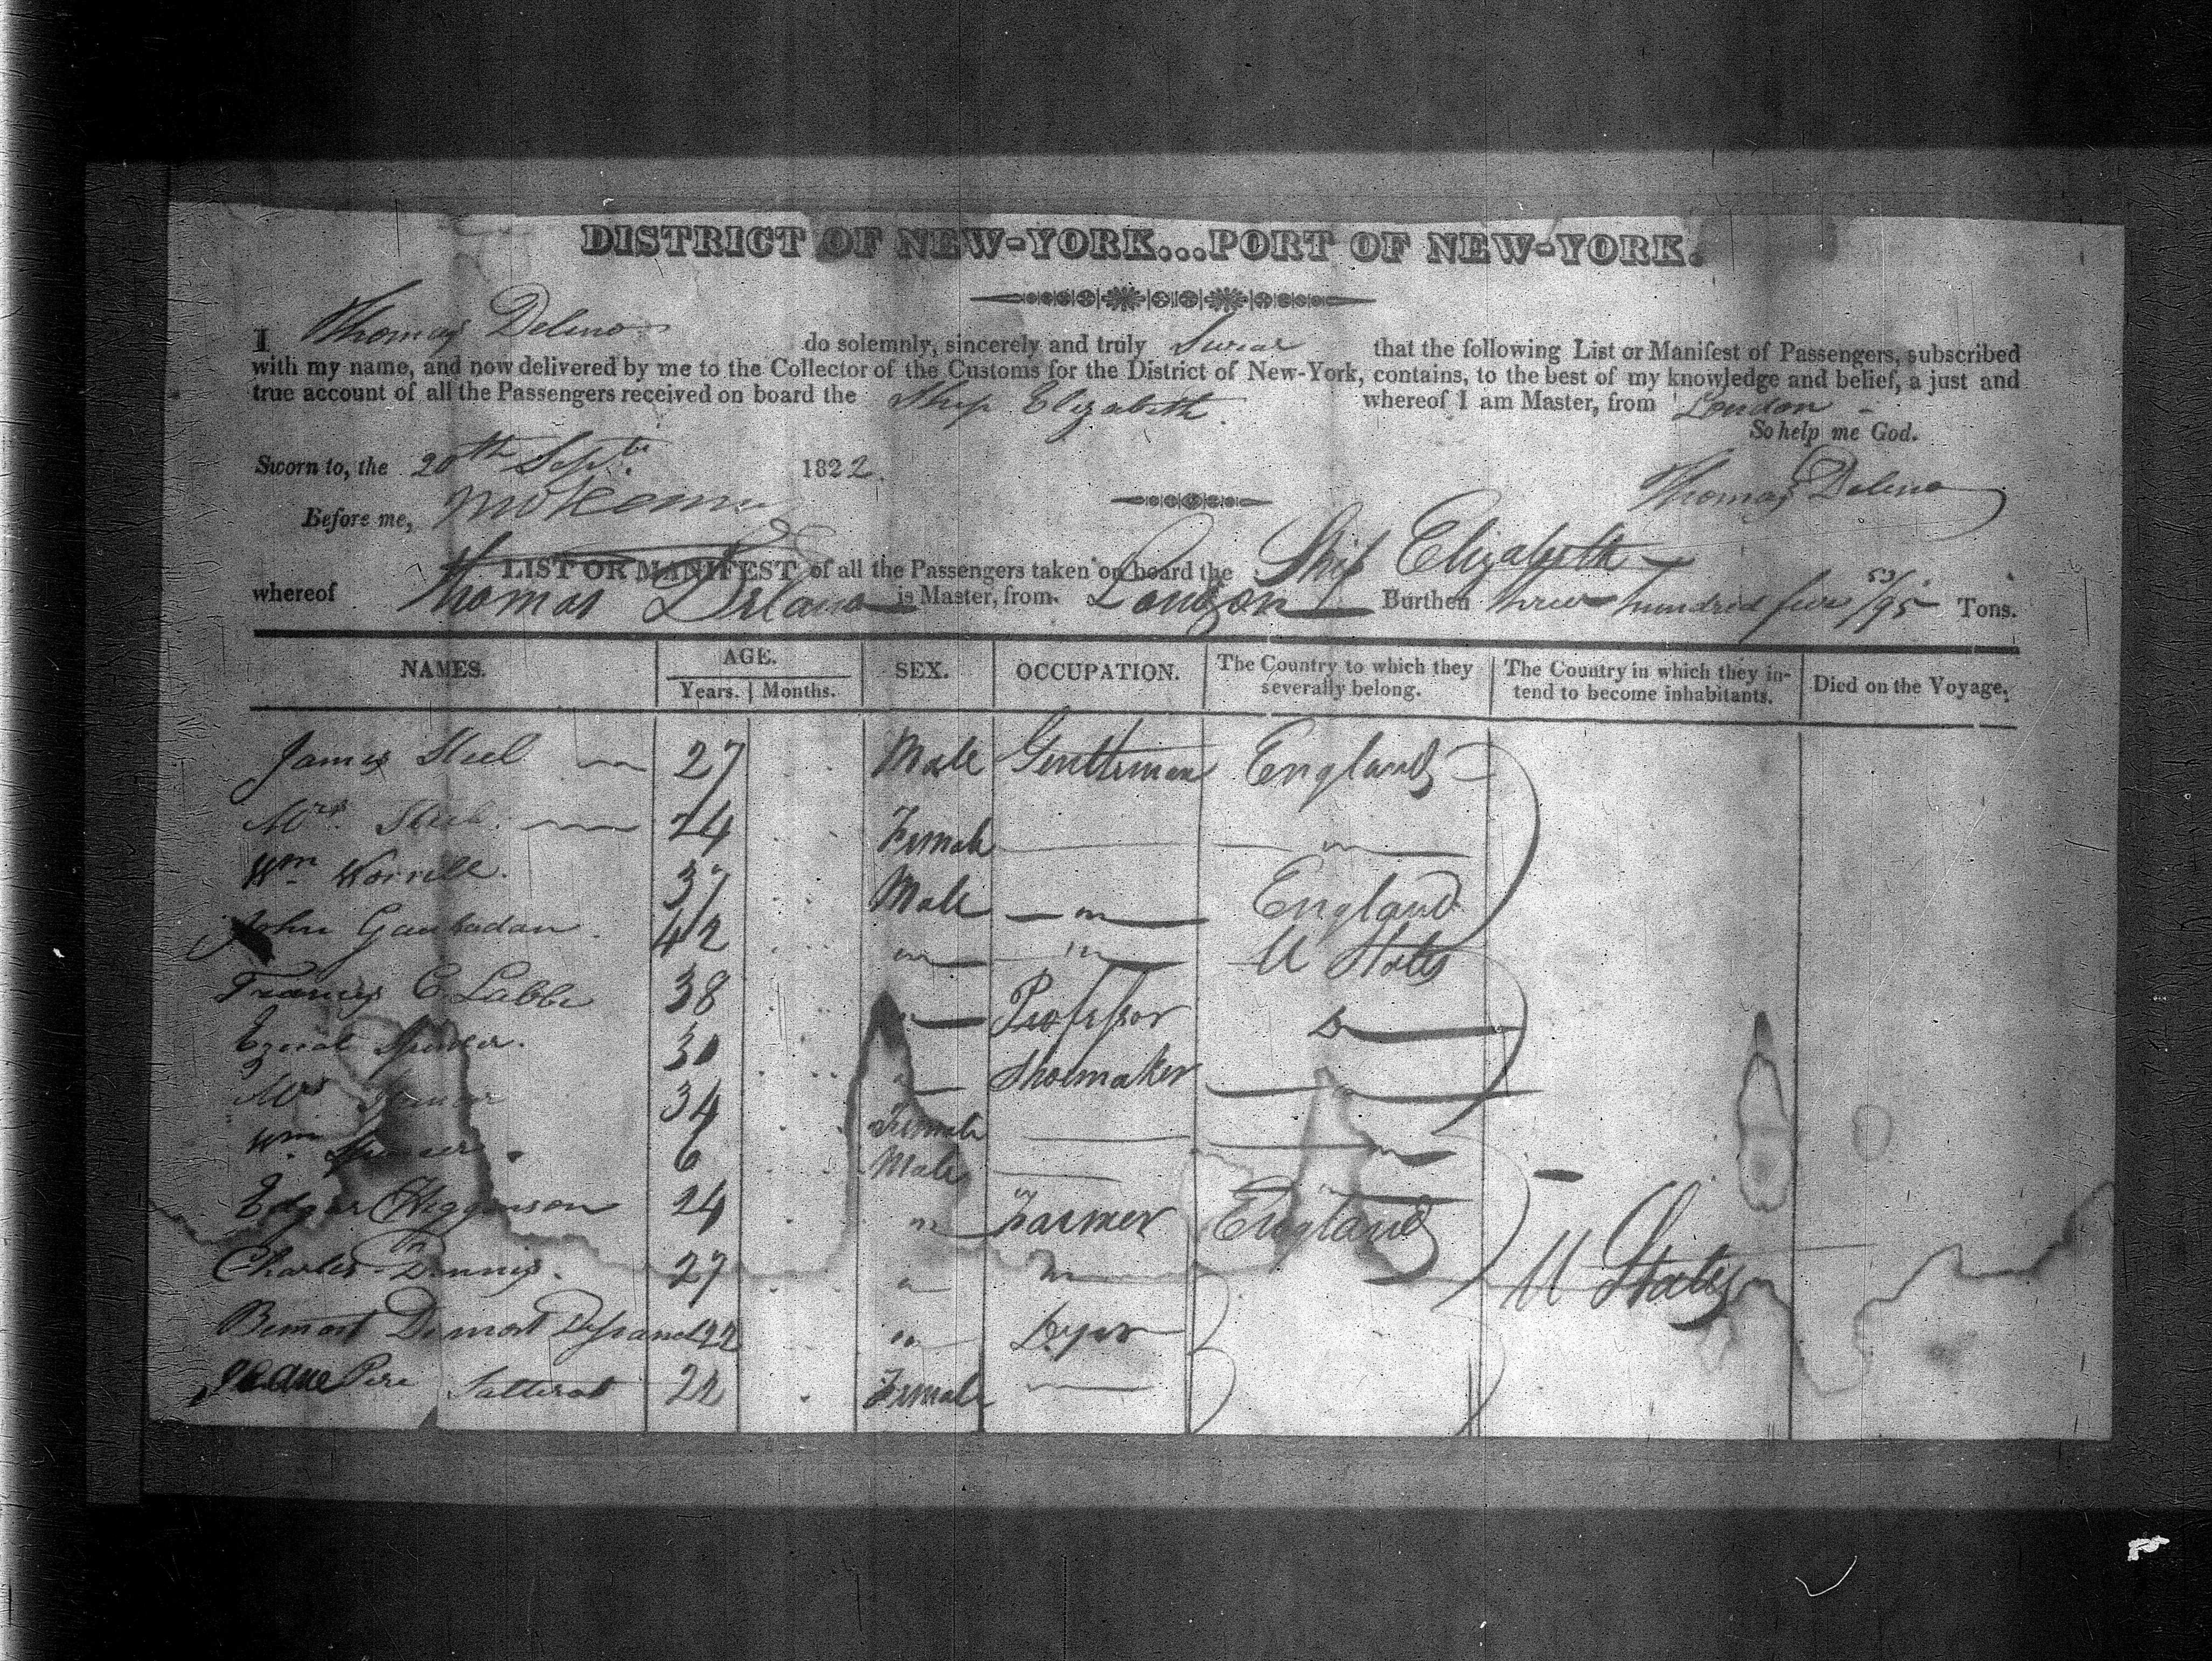 DISTRICT OF NEW-YORK...PORT OF NEW-YORK.
I Thomas Delano do solemnly, sincerely and truly Swear that the following List or Manifest of Passengers, subscribed
with my name, and now delivered by me to the Collector of the Customs for the District of New-York, contains, to the best of my knowledge and belief, a just and
true account of all the Passengers received on board the Ship Elizabeth whereof I am Master, from London
So help me God.
Sworn to, the 20th Septr. 1822.
Thomas Delano
Before me,
LIST OR MANIFEST of all the Passengers taken on board the Ship Elizabeth
whereof Thomas Delano is Master, from London Burthen three hundred five 53/95 Tons.
NAMES. AGE. SEX. OCCUPATION. The Country to which they severally belong. The Country in which they intend to become inhabitants. Died on the Voyage.
Years. Months.
James Steel 27 Male Gentleman England
Mrs. Steel 24 Female
Wm Worrell. 37 Male England
John 42 U States
Francis C. Labbe 38 Professor Do
Spencer. 30 Shoemaker
Mrs Spencer 34 Female
Wm Spencer 6 Male
Edgar Higginson 24 Farmer England U States
Charles Dennis. 27
22 Dyer
22 Female